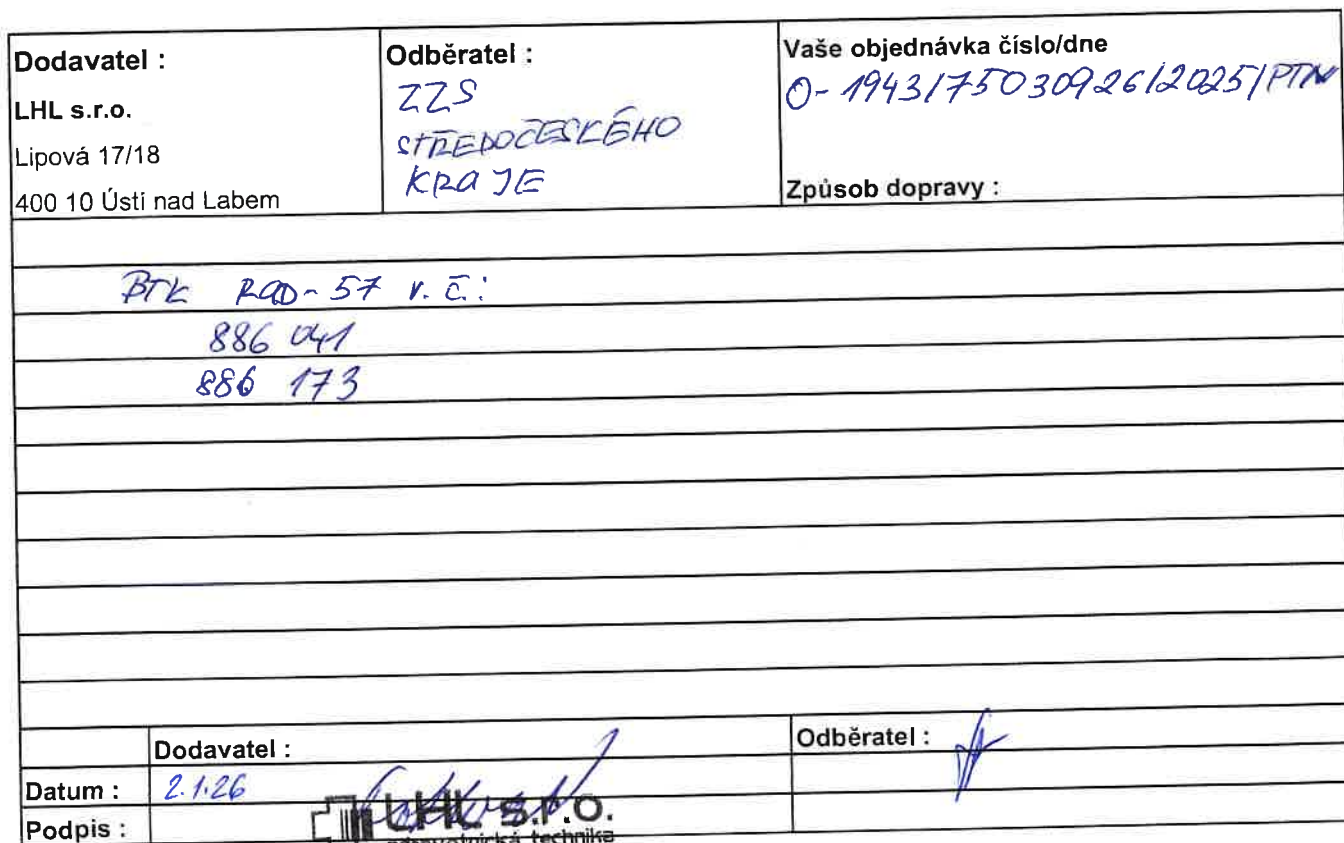 Dodavatel :
LHL s.r.o.
Lipová 17/18
400 10 Ústí nad Labem
Odběratel :
ZZS
STŘEDOČESKÉHO
KRAJE
Vaše objednávka číslo/dne
O-1943/75030926/2025/PTN
Způsob dopravy :
BTK RAD-57 v.č.:
886 041
886 173
Dodavatel :
Odběratel :
Datum :
2.1.26
Podpis :
LHL s.r.o.
zdravotnická technika